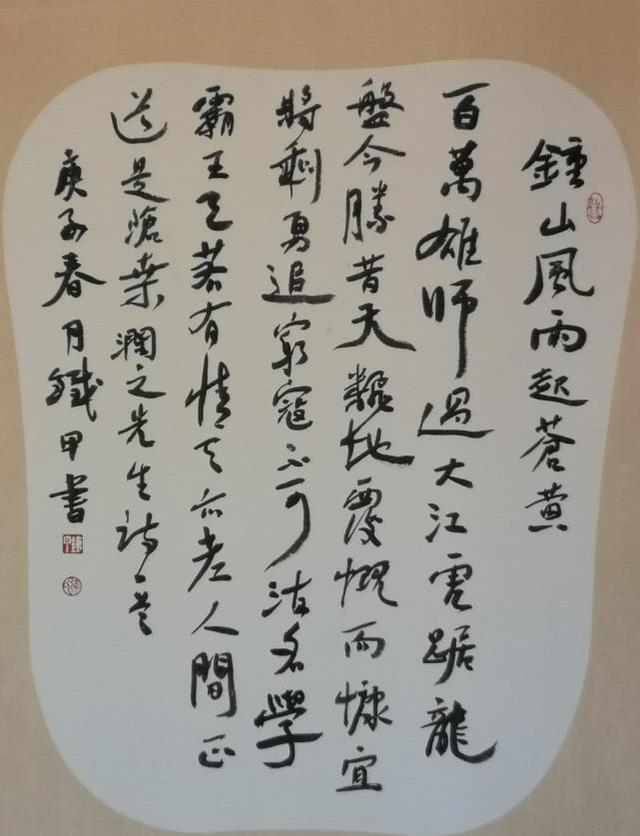 鍾山風雨起蒼黄
百萬雄師過大江虎踞龍
盤今勝昔天翻地覆慨而慷宜
將剩勇追窮寇不可沽名學
霸王天若有情天亦老人間正
道是滄桑潤之先生詩一首
庚子春月鐵甲書